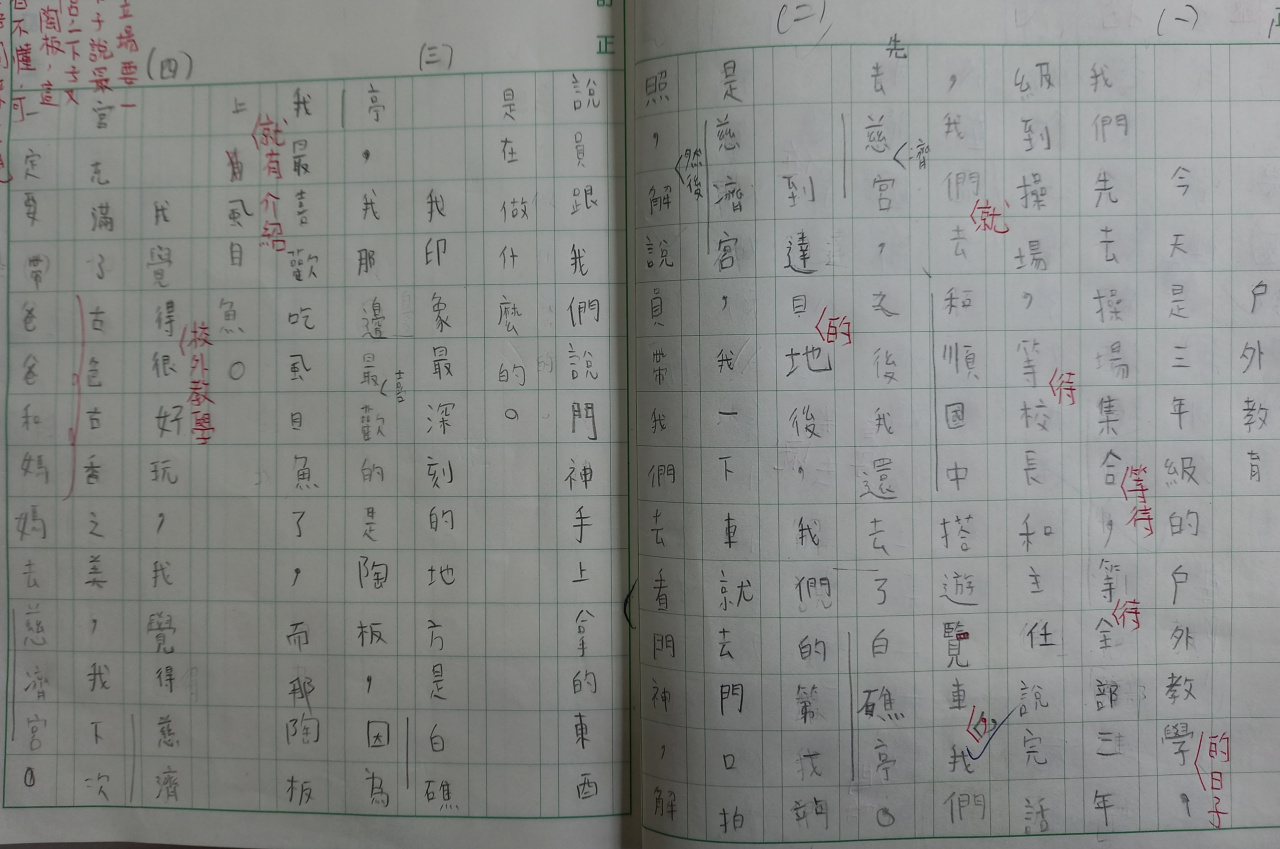 戶外教育
(一)
今天是三年級的戶外教學，
的日子
我們先去操場集合，等全部三年
等待
待
級到操場，等校長和主任說完話
待
，我們去和順國中搭遊覽車我們
就
，
先
去慈宮，之後我還去了白礁亭。
濟
(二)
到達目地後，我們的第我站
的
是慈濟宮，我一下車就去門口拍
照，解說員帶我們去看門神，解
然後
說員跟我們說門神手上拿的東西
是在做什麼的。
(三)
我印象最深刻的地方是白礁
亭，我那邊最歡的是陶板，因為
喜
我最喜歡吃風目魚了，而那陶板
就有介紹
上有風目魚。
(四)
我覺得很好玩，我覺得慈濟
校外教學
宮充滿了古色古香之美，我下次
一定要帶爸爸和媽媽去慈濟宮。
訂正
立場要一
子說最
陶板，這
不懂，可